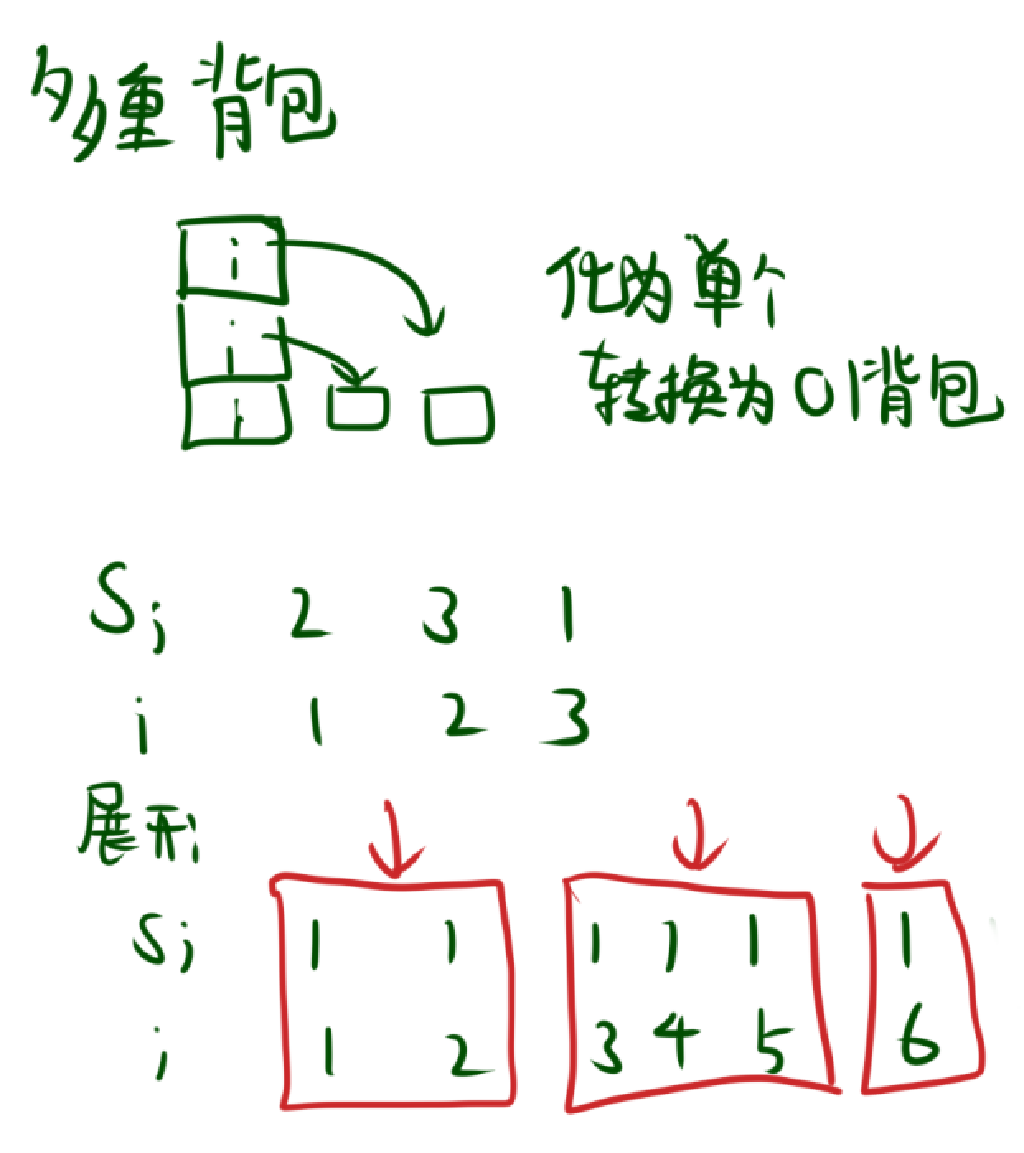 多重背包
i
化为单个
i
转换为01背包
i
Si 2 3 1
i 1 2 3
展形
Si 1 1 1 1 1 1
i 1 2 3 4 5 6